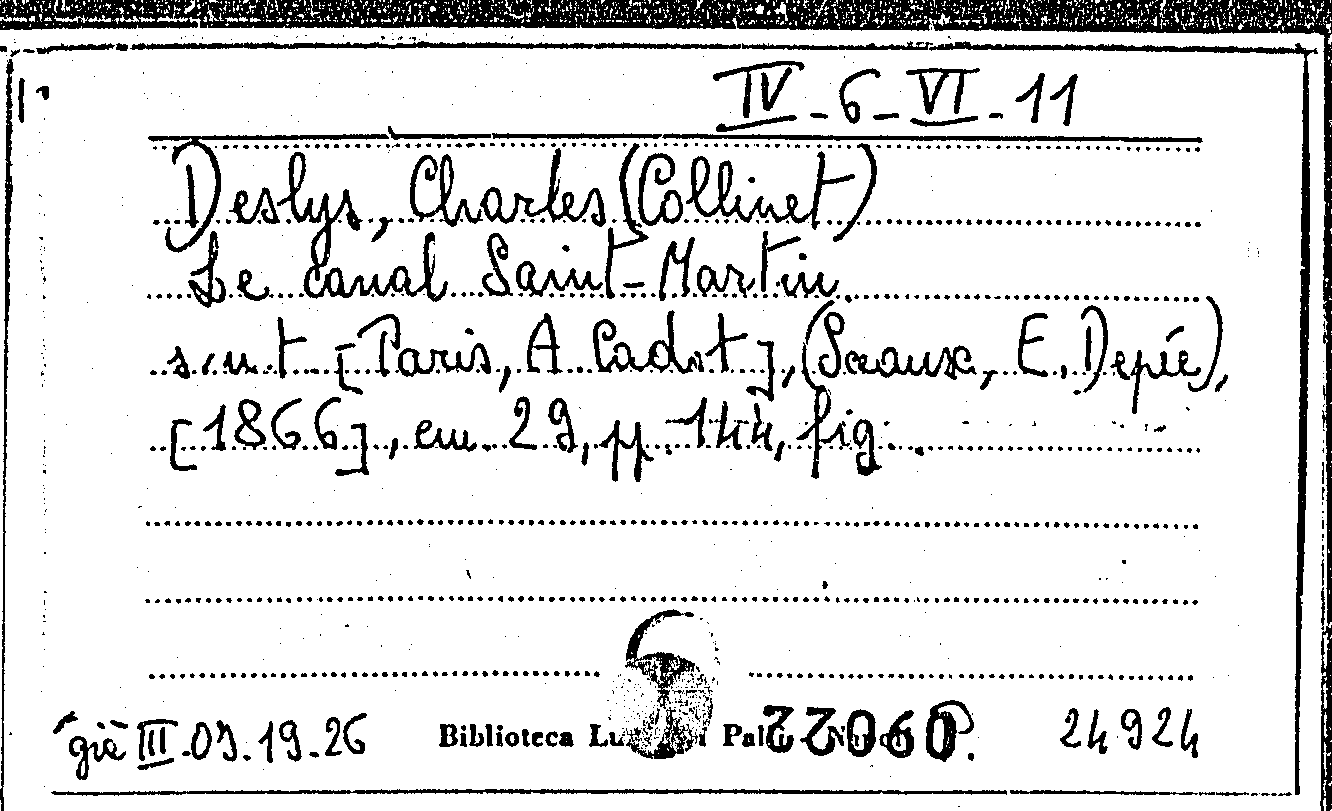 IV-6-VI-11
Deslys, Charles (Collinet)
Le canal Saint-Martin
s.n.t. [Paris, A. Cadot], (Sceaux, E. Depée),
[1866], cm. 29, pp. 144, fig.
già III.09.19.26 Biblioteca 22060 24924